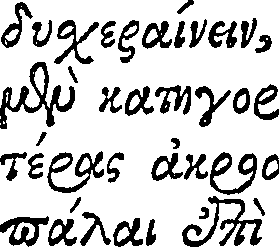 δυχεραίνειν,
μὴ κατηγορ
τέρας ἀκρο
πάλαι ἐπὶ